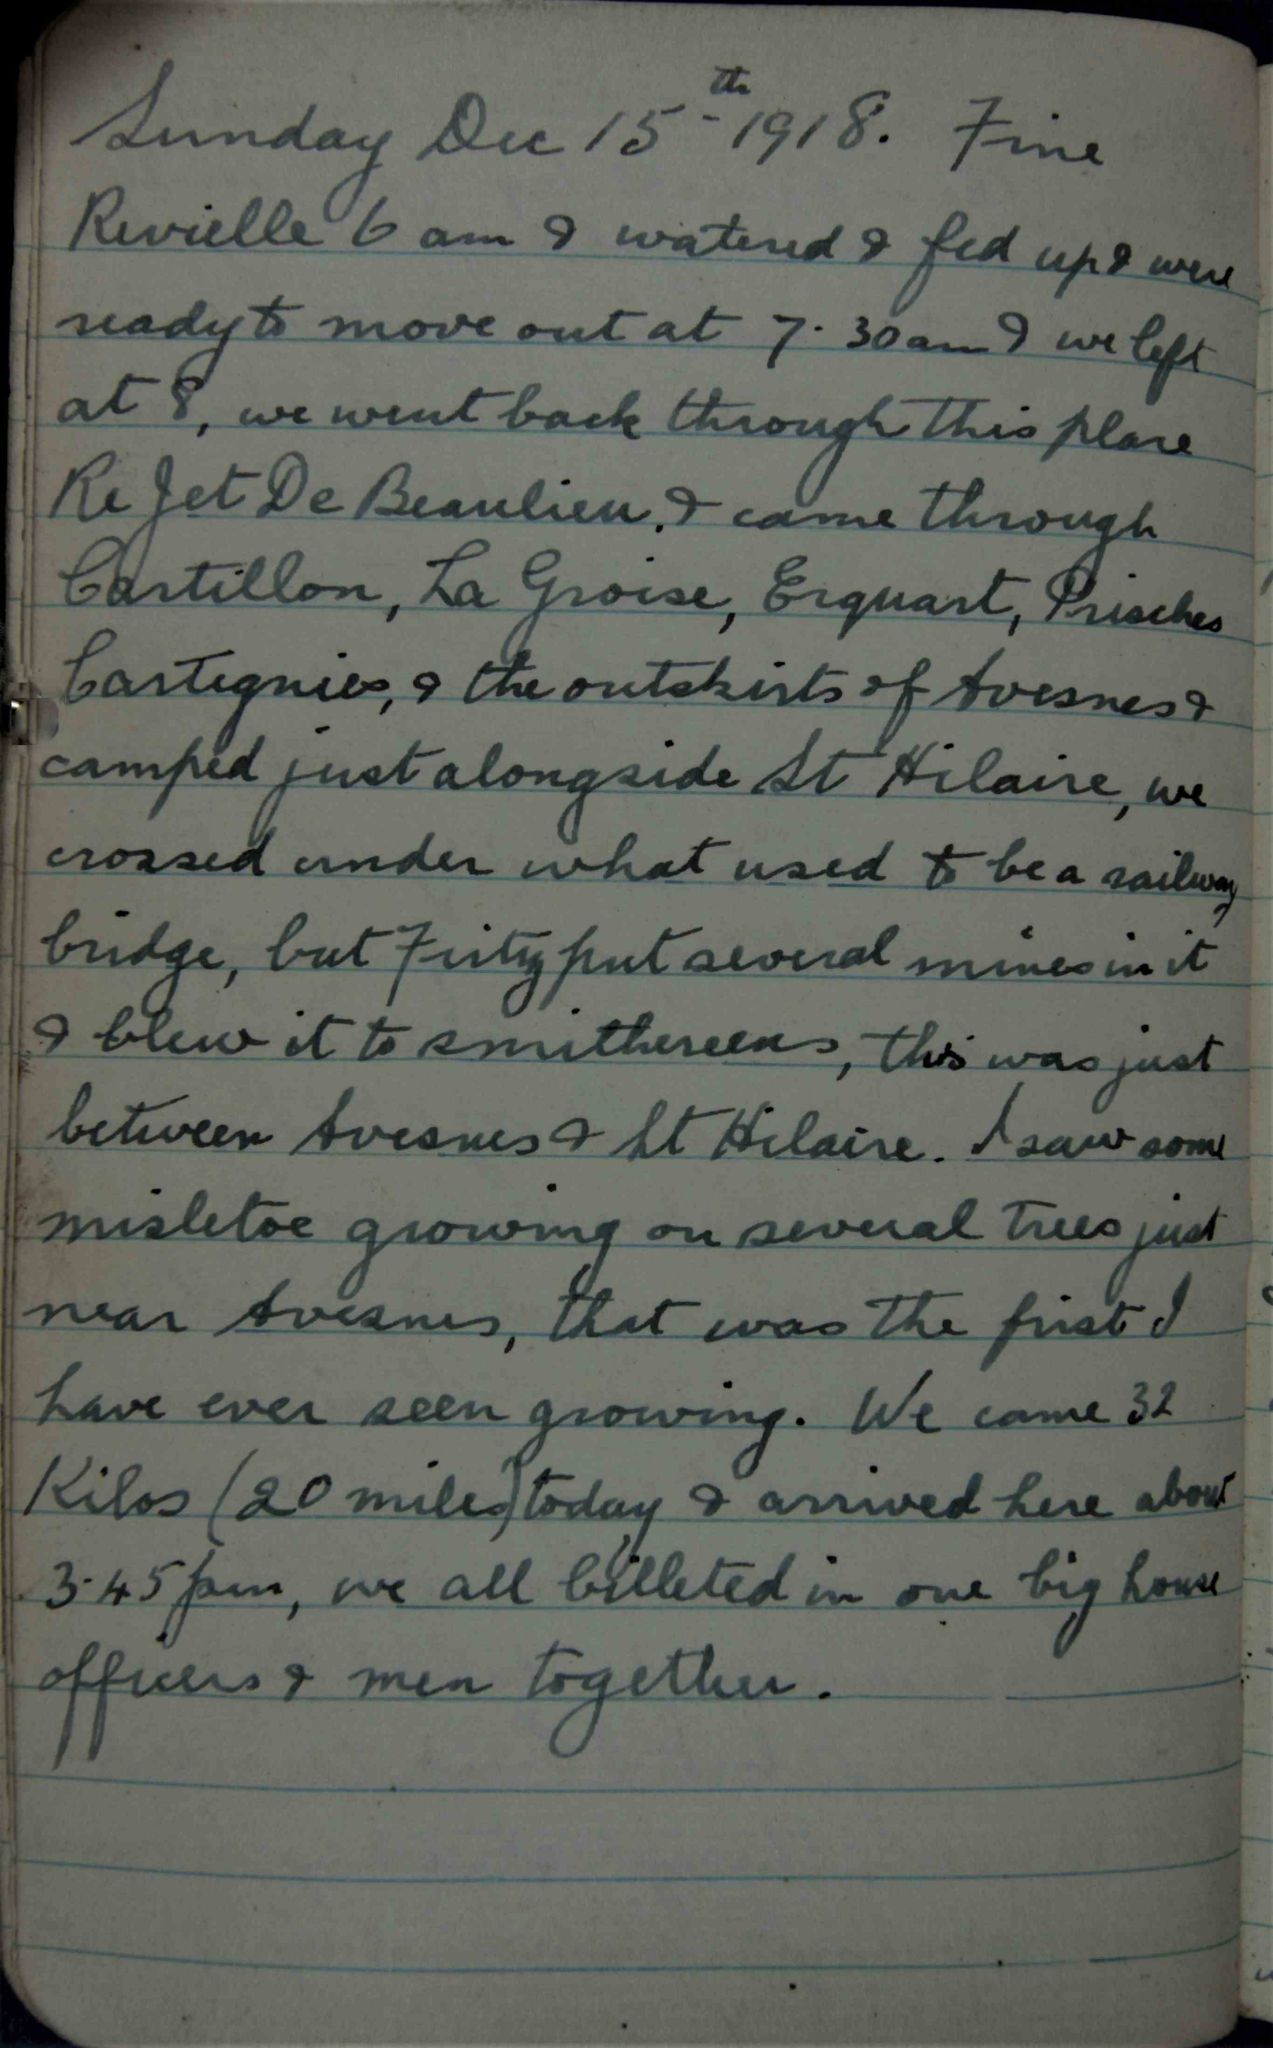 Sunday Dec 15th 1918. Fine
Revielle 6 am & watered & fed up & were
ready to move out at 7.30 am & we left
at 8, we went back through this place
Re Jet De Beaulieu, & came through
Cartillon, La Groise, Erquart, Prisches
Cartegnies, & the outskirts of Avesnes &
camped just alongside St Hilaire, we
crossed under what used to be a railway
bridge, but Fritz put several mines in it
& blew it to smithereens, this was just
between Avesnes & St Hilaire. I saw some
misletoe growing on several trees just
near Avesnes, that was the first I
have ever seen growing. We came 32
Kilos (20 miles) today & arrived here about
3.45 pm, we all billeted in one big house
officers & men together.